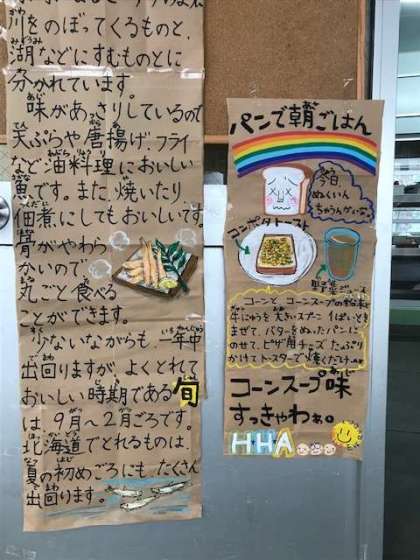 川をのぼってくるものと、
湖などにすむものとに
分かれています。
味があっさりしているので
天ぷらや唐揚げ、フライ
など油料理においしい
魚です。また、焼いたり、
佃煮にしてもおいしいです。
骨がやわら
かいので
丸ごと食べる
ことができます。
少ないながらも、一年中
出回りますが、よくとれて
おいしい時期である旬
は、9月〜2月ごろです。
北海道でとれるものは、
夏の初めごろにもたくさん
出回ります。
パンで朝ごはん
今日
コンポタトースト
野菜ジュース
コーンとコーンスープの粉末と
牛にゅうを大きいスプーン1ぱいとを
まぜて、バターをぬったパンに
のせて、ピザ用チーズたっぷり
かけてトースターで焼くだけ
コーンスープ味
すっきゃわぁ。
HHA